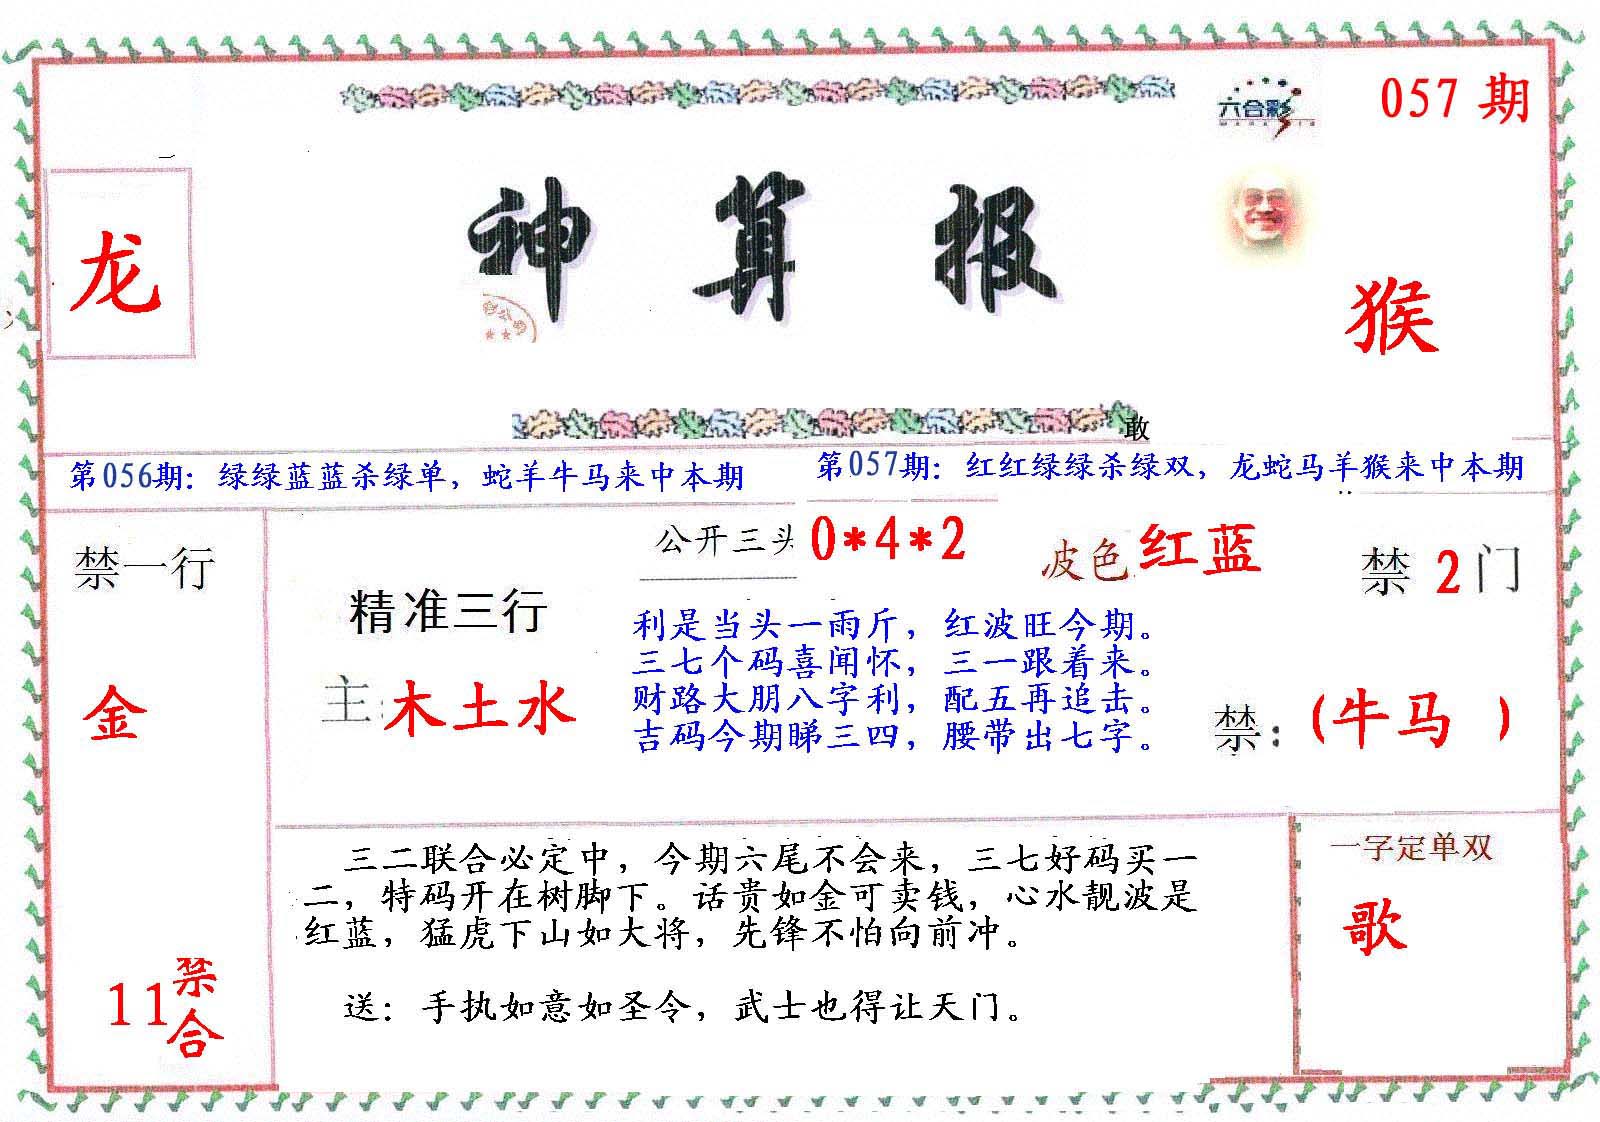 六合彩
057期
龙
神算报
猴
敢
第056期：绿绿蓝蓝杀绿单，蛇羊牛马来中本期
第057期：红红绿绿杀绿双，龙蛇马羊猴来中本期
禁一行
金
11禁合
精准三行
主：木土水
公开三头 0*4*2
波色 红蓝
禁 2 门
利是当头一雨斤，红波旺今期。
三七个码喜闻怀，三一跟着来。
财路大朋八字利，配五再追击。
吉码今期睇三四，腰带出七字。
禁：(牛马 )
三二联合必定中，今期六尾不会来，三七好码买一
二，特码开在树脚下。话贵如金可卖钱，心水靓波是
红蓝，猛虎下山如大将，先锋不怕向前冲。
送：手执如意如圣令，武士也得让天门。
一字定单双
歌